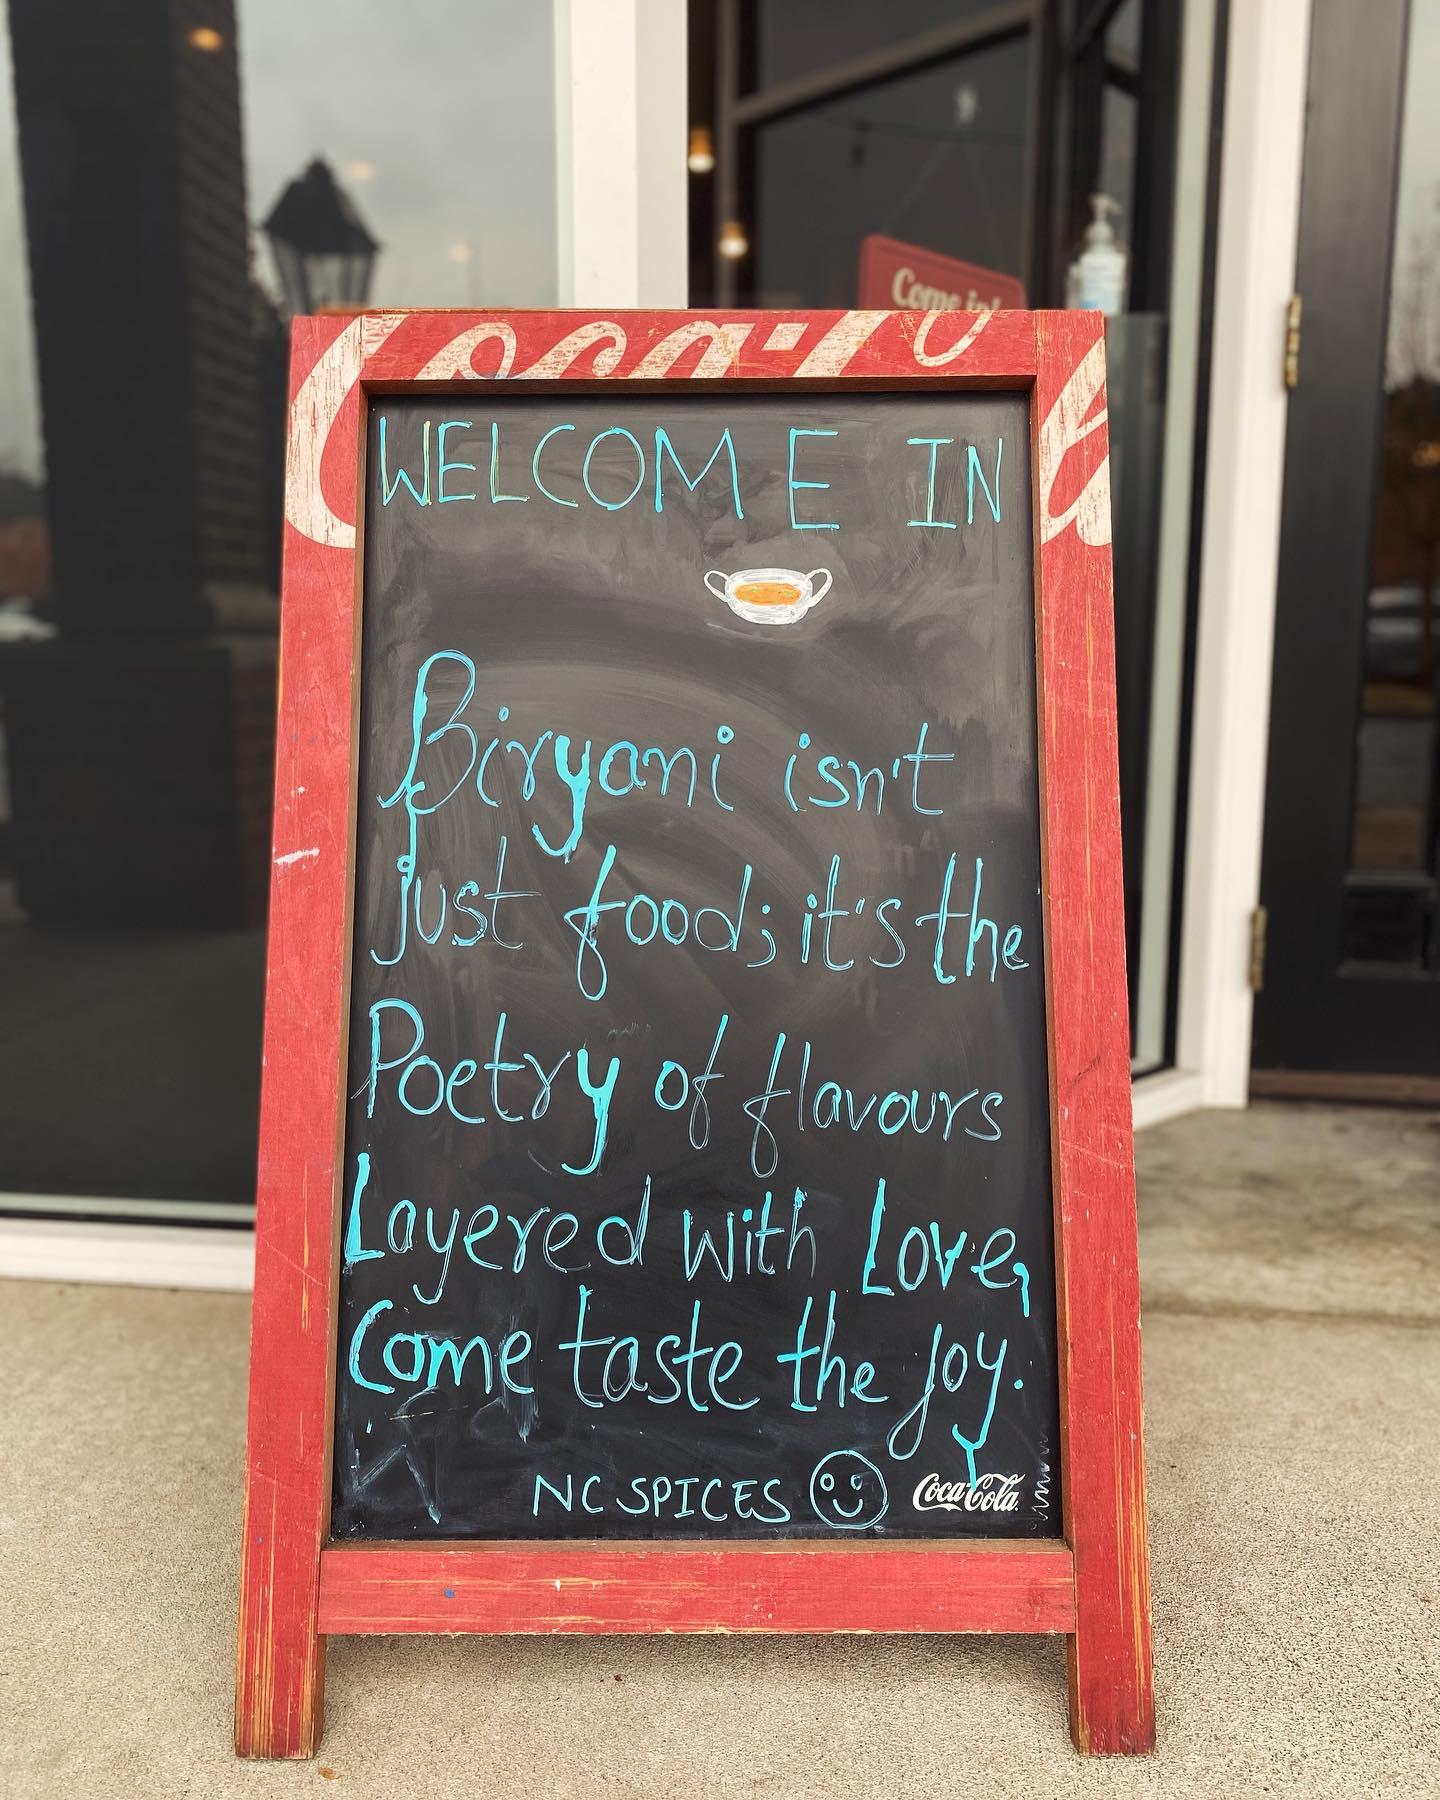 Come in!
Coca-Co
WELCOME IN
Biryani isn't
just food; it's the
Poetry of flavours
Layered with Love,
Come taste the joy.
NC SPICES
Coca-Cola